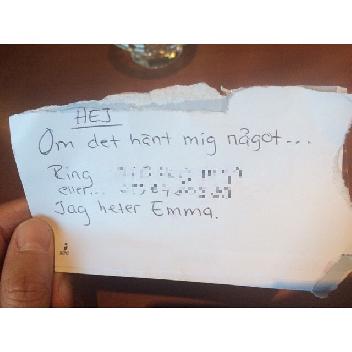 HEJ
Om det hänt mig något...
Ring
eller...
Jag heter Emma.